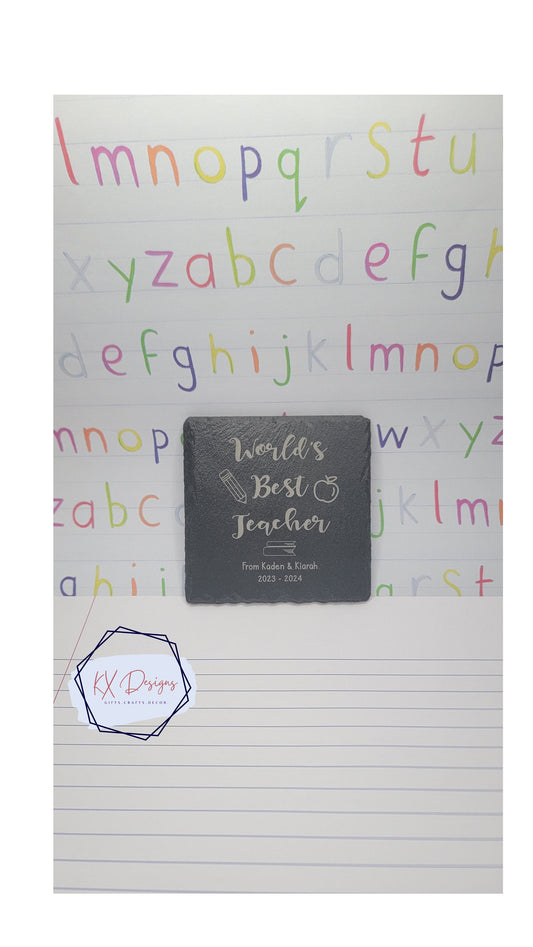 l m n o p q r s t u
x y z a b c d e f g h
d e f g h i j k l m n o p
m n o p w x y z
z a b c j k l m n
g h i j q r s t
World's
Best
Teacher
From Kaden & Kiarah
2023 - 2024
KX Designs
GIFTS.CRAFTS.DECOR.